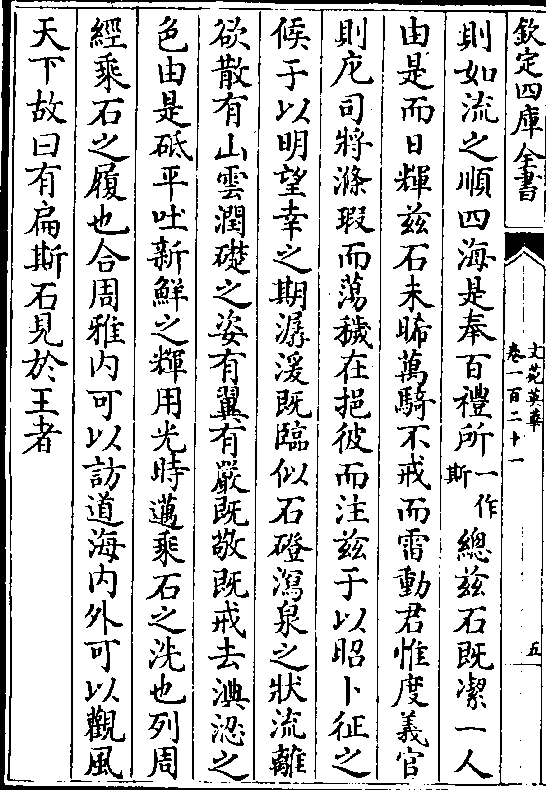 欽定四庫全書
文苑英華
卷一百二十一
五
則如流之順四海是奉百禮所一作斯總兹石既潔一人
由是而日輝兹石未晞萬騎不戒而雷動君惟度義官
則庀司將滌瑕而蕩穢在挹彼而注兹于以昭卜征之
候于以明望幸之期潺湲既臨似石磴瀉泉之狀流離
欲散有山雲潤礎之姿有翼有嚴既敬既戒去淟涊之
色由是砥平吐新鮮之輝用光時邁乘石之洗也列周
經乘石之履也合周雅内可以訪道海内外可以觀風
天下故曰有扁斯石見於王者